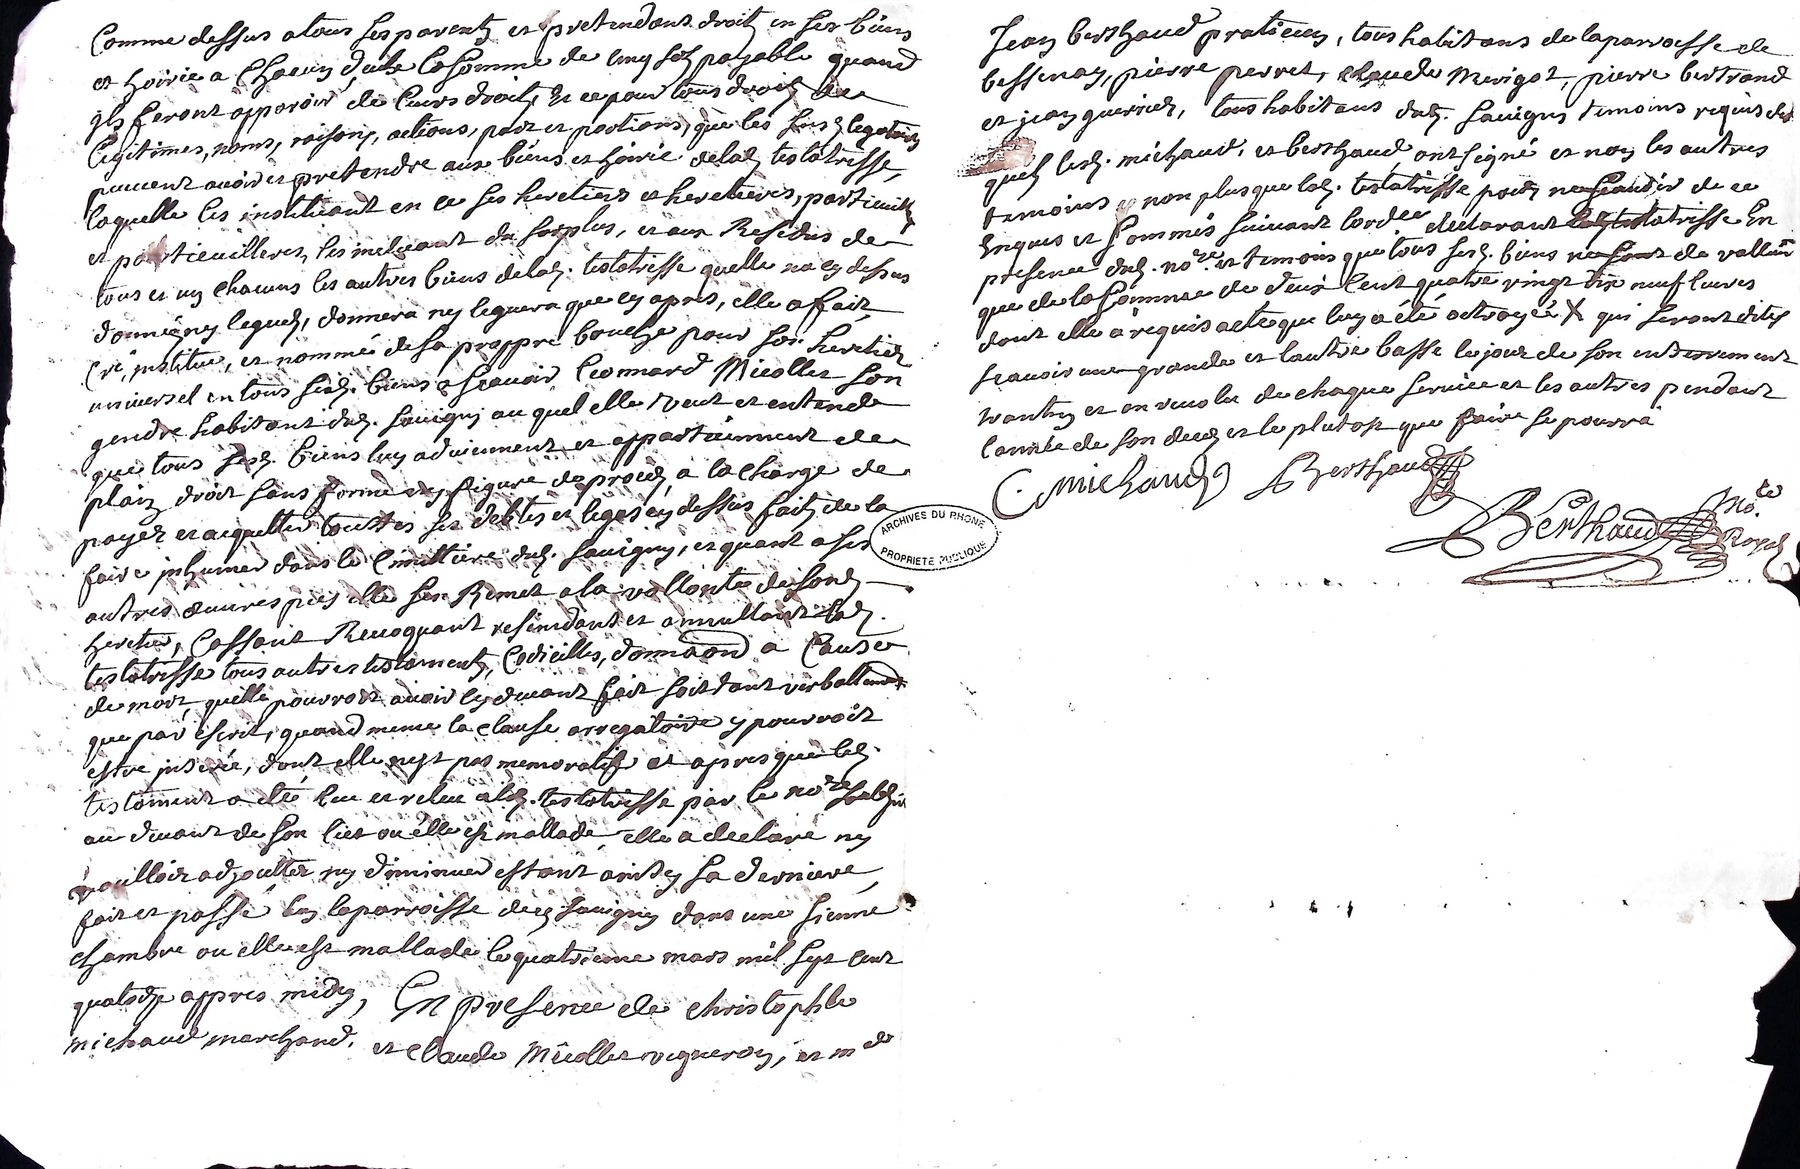 Comme dessus a tous ses parents et pretendant droit en ses biens
et hoirie a chacun d'eulx la somme de cinq sols payable quand
ils feront apparoir de leurs droits, et ce pour tous droits de
legitimes, noms, raisons, actions, part et portions, que les susd legataires
peuvent avoir et pretendre aux biens et hoirie de lad testatrisse,
laquelle les instituant en ce ses heretiers et heretieres, particuilliers
et particuillieres, les incluant du surplus, et aux Residus de
tous et un chacuns les autres biens de lad. testatrisse quelle na cy dessus
donné ny legués, donnera ny leguera que cy apres, elle a fait,
cré, institué, et nommé de sa proppre bouche pour son heretier
universel en tous sesd. biens a sçauoir Leonnard Micollet son
gendre habitant dud. Sauigny au quel elle veut et entend
que tous sesd. biens luy adviennent et appartiennent de
plain droit sans forme ny figure de procès, a la charge de
payer et acquitter touttes ses debtes et legas cy dessus faits de la
faire inhumer dans le cimittiere dud. Sauigny, et quant a ses
autres œuures pies elle s'en Remet a la vollonté de sond
heretier, Cassant Reuoquant rescindant et annullant lad.
testatrisse tous autres testaments, Codicilles, donnaõns a Cause
de mort, quelle pourroit auoir cy deuant fait soit tant verballement
que par escrit, quand meme la clause arregatoire y pourroit
estre inserée, dont elle nest pas memoratif et apres que led.
testament a eté leu et releu a lad. testatrisse par le no.re
au deuant de son lict ou elle est mallade, elle a declaré ny
vouilloir adjoutter ny diminuer estant ainsy sa derniere,
fait et passé en la parroisse dud Sauigny dans une sienne
chambre ou elle est mallade le quatrieme mars mil sept cent
quatorze appres midy, En presence de christophle
michaud marchand, et Claude Micollet vigneron, et m.e
Jean Berthaud praticien, tous habitans de la parroisse de
bessenay, pierre perret, claude Merigot, pierre bertrand
et jean guerrier, tous habitans dud. Sauigny temoins requis des
quels lesd. michaud, et berthaud ont signé et non les autres
temoins non plus que lad. testatrisse pour ne sçauoir de ce
enquis et sommés suiuant lord.ce declarant lad testatrisse En
presence dud. no.re et temoins que tous sesd. biens ne sont de valleur
que de la somme de deux cent quatre vingt dix neuf liures
dont elle a requis acte que luy a eté octroyé X qui seront dites
sçauoir une grande et l'autre basse le jour de son enterrement
et en reuolu de chaque service et les autres pendant
l'année de son deces et le plutost que faire se pourra
C. Michaud Berthaud
Berthaud No.re
Royal
ARCHIVES DU RHONE
PROPRIETE PUBLIQUE